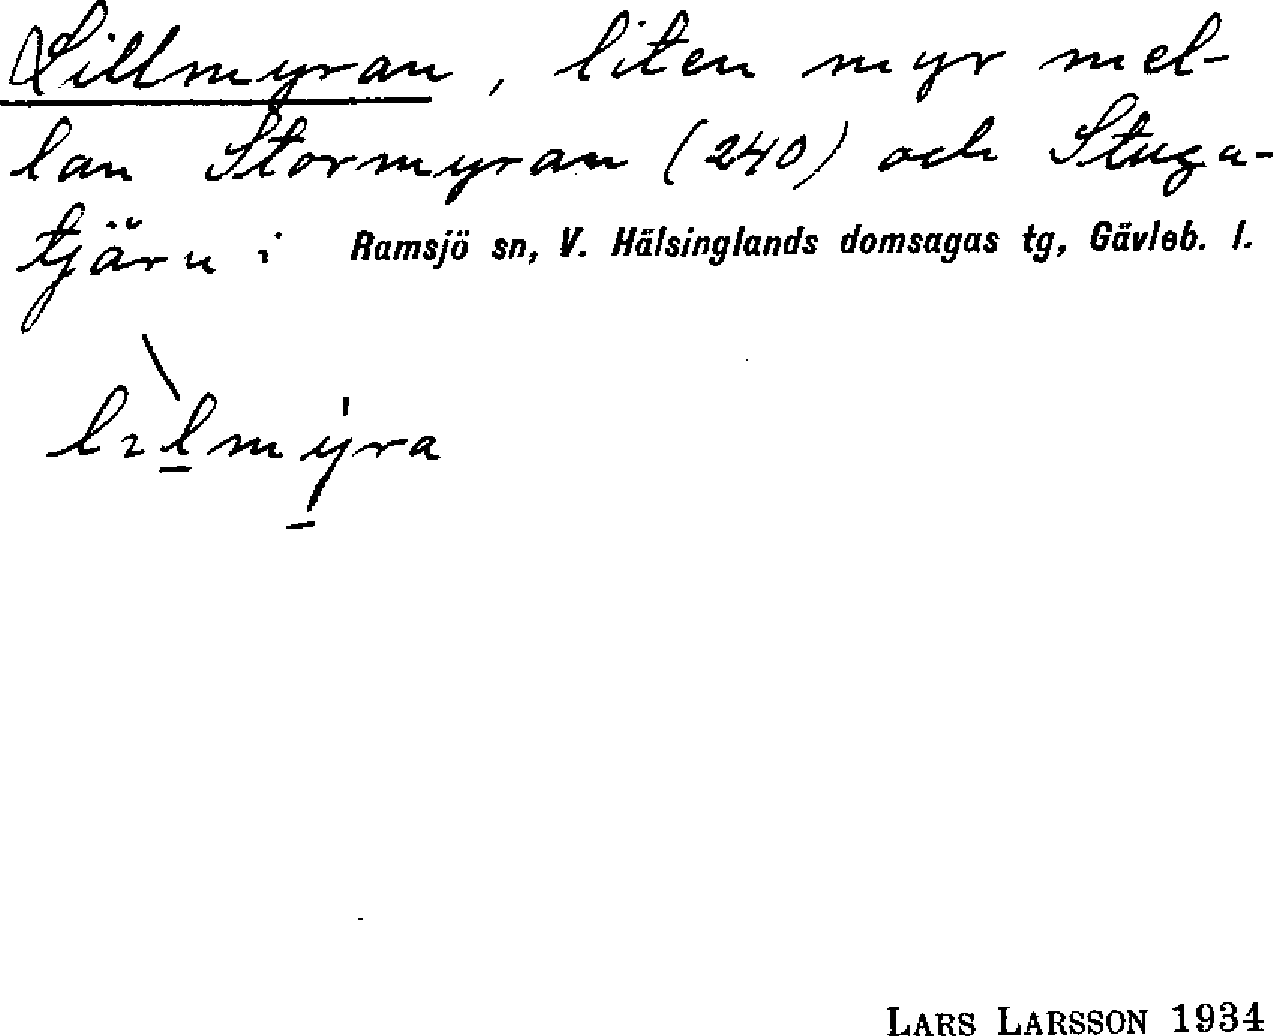 Lillmyran, liten myr mel-
lan Stormyran (240) och Stuga-
tjärn i Ramsjö sn, V. Hälsinglands domsagas tg, Gävleb. l.
lɪlmyra
LARS LARSSON 1934